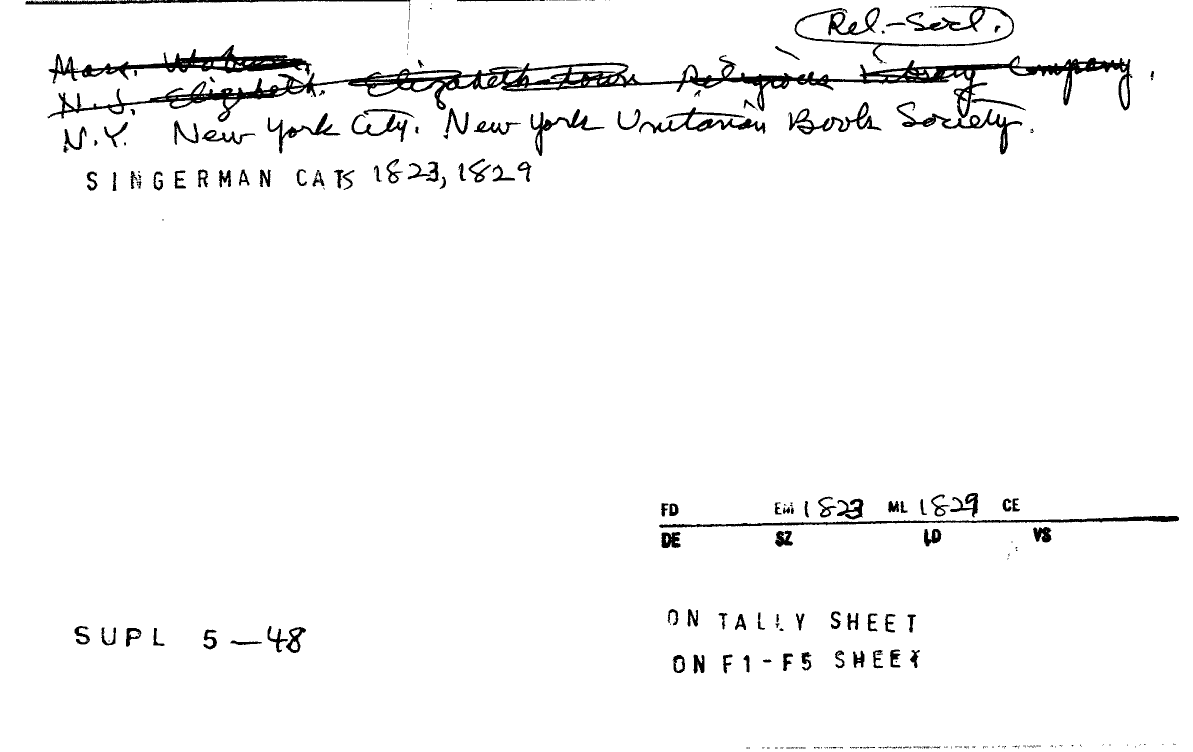 Rel.-Socl.
Mass. Woburn.
N.J. Elizabeth. Elizabeth-town Religious Library Company.
N.Y. New York City. New York Unitarian Book Society.
SINGERMAN CATS 1823, 1829
FD EM 1823 ML 1829 CE
DE SZ LD VS
ON TALLY SHEET
SUPL 5-48
ON F1-F5 SHEET